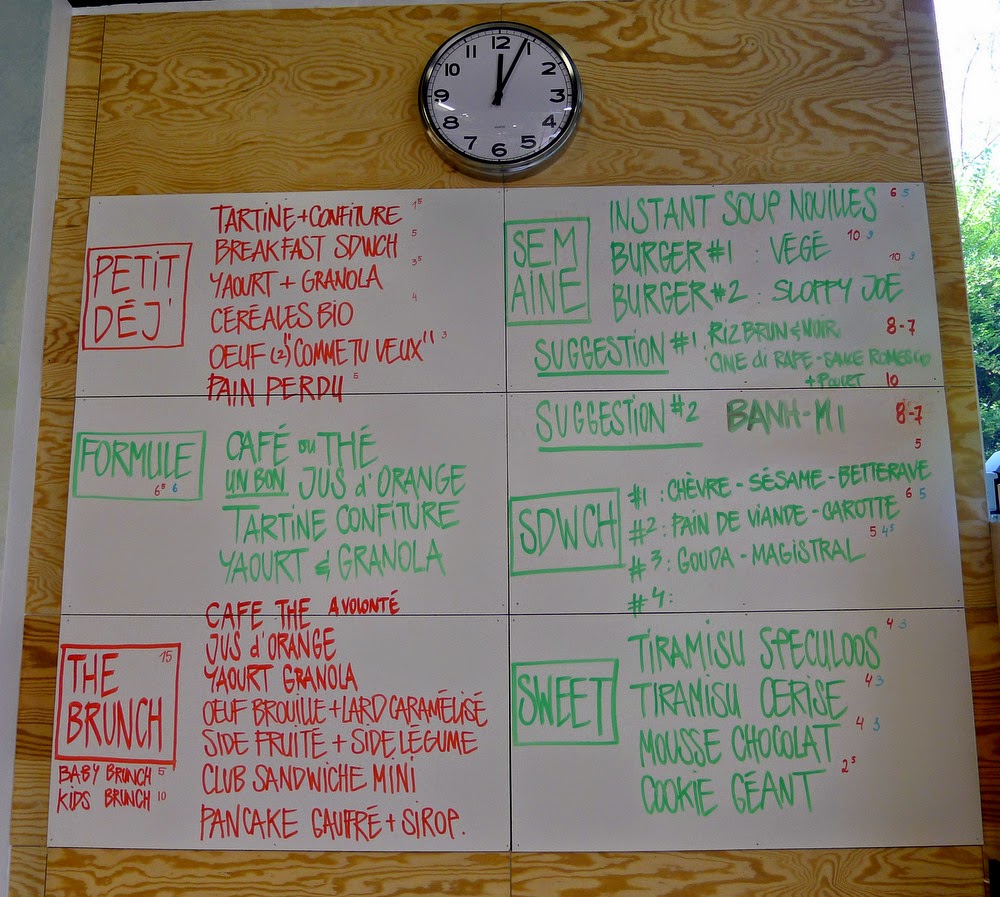 11 12 1
10 2
9 3
8 4
7 6 5
PETIT DÉJ'
TARTINE + CONFITURE 1⁵
BREAKFAST SDWCH 5
YAOURT + GRANOLA 3⁵
CÉRÉALES BIO 4
OEUF (2) "COMME TU VEUX" 3
PAIN PERDU 5
FORMULE
6⁵ 6
CAFÉ OU THÉ
UN BON JUS d'ORANGE
TARTINE CONFITURE
YAOURT & GRANOLA
THE 15
BRUNCH
BABY BRUNCH 5
KIDS BRUNCH 10
CAFE THE A VOLONTÉ
JUS d'ORANGE
YAORT GRANOLA
OEUF BROUILLE + LARD CARAMÉLISÉ
SIDE FRUITÉ + SIDE LÉGUME
CLUB SANDWICHE MINI
PANCAKE GAUFRÉ + SIROP.
SEM
AINE
INSTANT SOUP NOUILLES 6 5
BURGER #1 : VÉGÉ 10 9
BURGER #2 : SLOPPY JOE 10 9
SUGGESTION #1 RIZ BRUN & NOIR 8-7
CINE di RAPE - SAUCE ROMESCO
+ POULET 10
SUGGESTION #2 BANH-MI 8-7
SDWCH
#1 : CHÈVRE - SÉSAME - BETTERAVE 5
#2 : PAIN DE VIANDE - CAROTTE 6 5
#3 : GOUDA - MAGISTRAL 5 4⁵
#4 :
SWEET
TIRAMISU SPECULOOS 4 3
TIRAMISU CERISE 4 3
MOUSSE CHOCOLAT 4 3
COOKIE GÉANT 2⁵